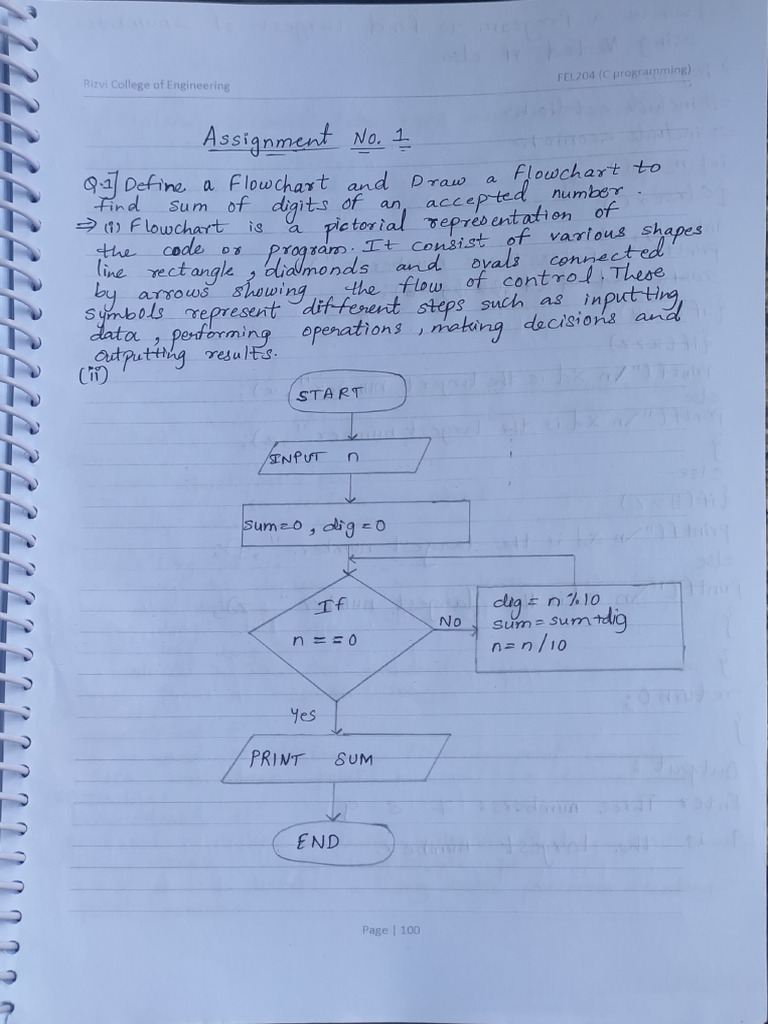 Rizvi College of Engineering
FEL204 (C programming)
Assignment No. 1
Q.1] Define a Flowchart and Draw a Flowchart to
find sum of digits of an accepted number.
⇒ (i) Flowchart is a pictorial representation of
the code or program. It consist of various shapes
line rectangle, diamonds and ovals connected
by arrows showing the flow of control. These
symbols represent different steps such as inputting
data, performing operations, making decisions and
outputting results.
(ii)
START
INPUT n
sum=0, dig=0
If
n==0
No
dig = n%10
sum=sum+dig
n=n/10
Yes
PRINT SUM
END
Page | 100